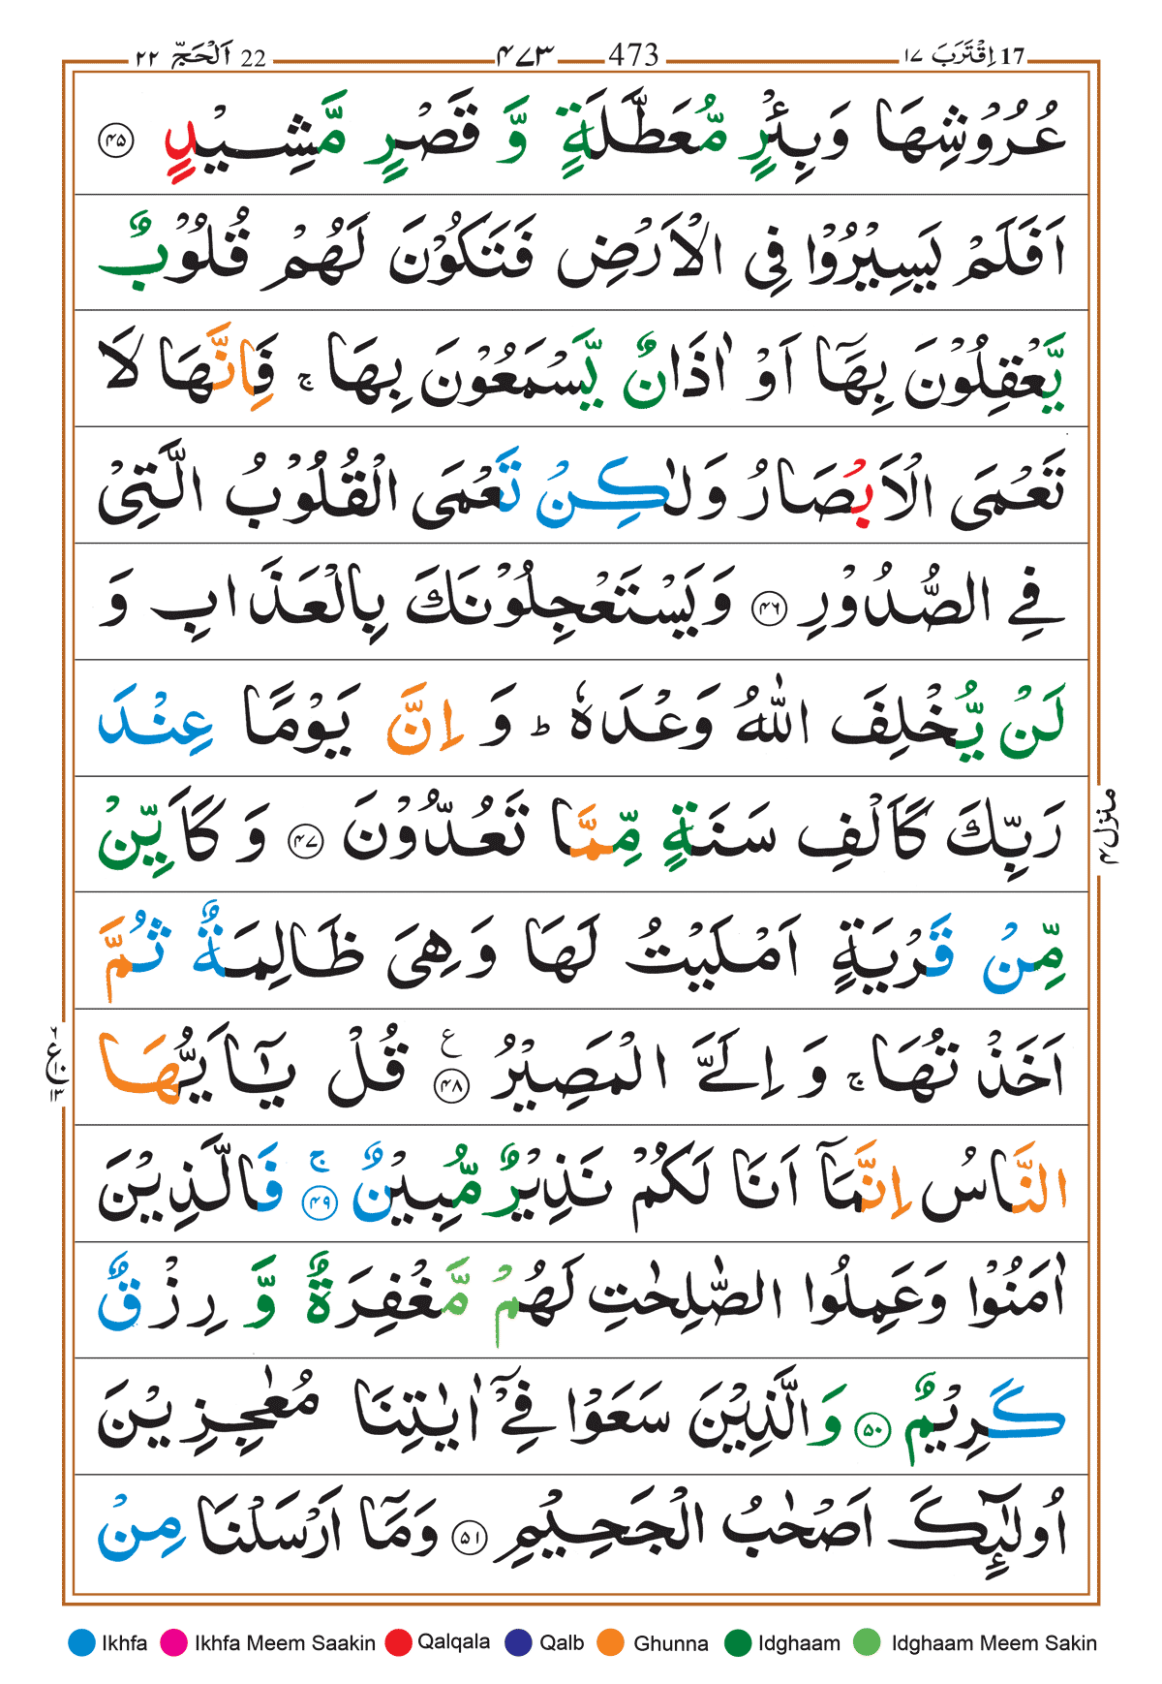 22 اَلْحَجّ ٢٢ ٤٧٣ 473 17 اِقْتَرَبَ ١٧
عُرُوْشِهَا وَبِئْرٍ مُّعَطَّلَةٍ وَّ قَصْرٍ مَّشِيْدٍ ﴿٤٥﴾
اَفَلَمْ يَسِيْرُوْا فِى الْاَرْضِ فَتَكُوْنَ لَهُمْ قُلُوْبٌ
يَّعْقِلُوْنَ بِهَآ اَوْ اٰذَانٌ يَّسْمَعُوْنَ بِهَا ۚ فَاِنَّهَا لَا
تَعْمَى الْاَبْصَارُ وَلٰكِنْ تَعْمَى الْقُلُوْبُ الَّتِىْ
فِى الصُّدُوْرِ ﴿٤٦﴾ وَيَسْتَعْجِلُوْنَكَ بِالْعَذَابِ وَ
لَنْ يُّخْلِفَ اللّٰهُ وَعْدَهٗ ؕ وَ اِنَّ يَوْمًا عِنْدَ
رَبِّكَ كَاَلْفِ سَنَةٍ مِّمَّا تَعُدُّوْنَ ﴿٤٧﴾ وَ كَاَيِّنْ
مِّنْ قَرْيَةٍ اَمْلَيْتُ لَهَا وَهِىَ ظَالِمَةٌ ثُمَّ
اَخَذْتُهَا ۚ وَ اِلَىَّ الْمَصِيْرُ ﴿٤٨﴾ ع قُلْ يٰۤاَيُّهَا
النَّاسُ اِنَّمَآ اَنَا لَكُمْ نَذِيْرٌ مُّبِيْنٌ ۚ ﴿٤٩﴾ فَالَّذِيْنَ
اٰمَنُوْا وَعَمِلُوا الصّٰلِحٰتِ لَهُمْ مَّغْفِرَةٌ وَّ رِزْقٌ
كَرِيْمٌ ﴿٥٠﴾ وَالَّذِيْنَ سَعَوْا فِىْٓ اٰيٰتِنَا مُعٰجِزِيْنَ
اُولٰٓئِكَ اَصْحٰبُ الْجَحِيْمِ ﴿٥١﴾ وَمَآ اَرْسَلْنَا مِنْ
منزل ٤
Ikhfa Ikhfa Meem Saakin Qalqala Qalb Ghunna Idghaam Idghaam Meem Sakin